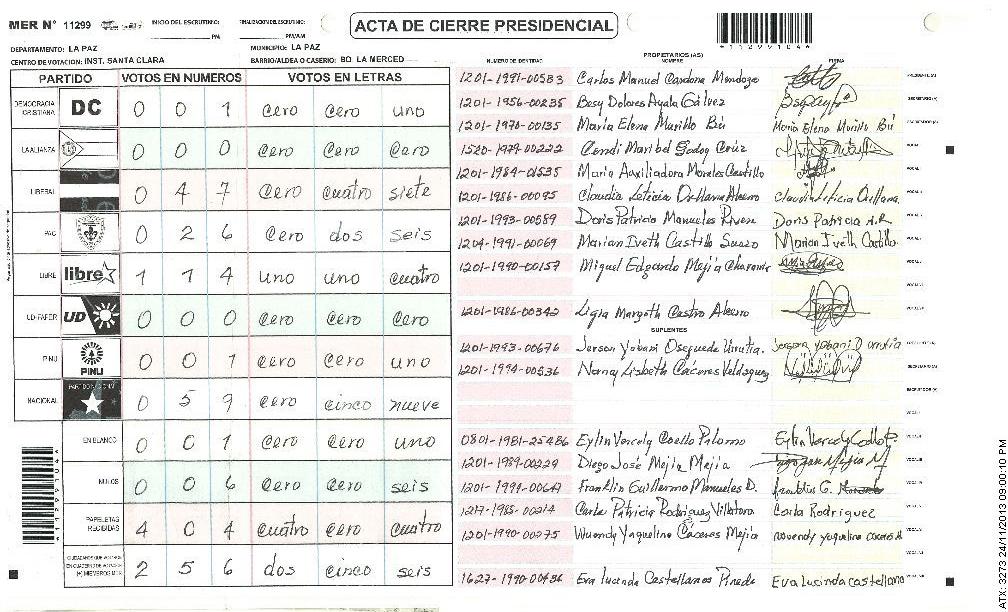 MER N° 11299
INICIO DEL ESCRUTINIO:
PM
FINALIZACION DEL ESCRUTINIO:
PM/AM
ACTA DE CIERRE PRESIDENCIAL
DEPARTAMENTO: LA PAZ
MUNICIPIO: LA PAZ
CENTRO DE VOTACION: INST. SANTA CLARA
BARRIO/ALDEA O CASERIO: BO LA MERCED
PARTIDO VOTOS EN NUMEROS VOTOS EN LETRAS
DEMOCRACIA CRISTIANA DC 0 0 1 cero cero uno
LA ALIANZA 0 0 0 cero cero cero
LIBERAL 0 4 7 cero cuatro siete
PAC 0 2 6 cero dos seis
LIBRE libre 1 1 4 uno uno cuatro
UD-FAPER UD 0 0 0 cero cero cero
PINU PINU 0 0 1 cero cero uno
NACIONAL PARTIDO NACIONAL 0 5 9 cero cinco nueve
EN BLANCO 0 0 1 cero cero uno
NULOS 0 0 6 cero cero seis
PAPELETAS RECIBIDAS 4 0 4 cuatro cero cuatro
CIUDADANOS QUE VOTARON EN CUADERNO DE VOTACION (+) MIEMBROS MER 2 5 6 dos cinco seis
PROPIETARIOS (AS)
NUMERO DE IDENTIDAD NOMBRE FIRMA
1201-1991-00583 Carlos Manuel Cardona Mendoza
1201-1956-00235 Besy Dolores Ayala Gálvez
1201-1970-00135 Maria Elena Murillo Bú Maria Elena Murillo Bú
1520-1979-00222 Cendi Maribel Godoy Cruz
1201-1984-01535 Maria Auxiliadora Morales Castillo
1201-1986-00095 Claudia Leticia Orellana Claudia Leticia Orellana
1201-1993-00559 Doris Patricia Manueles Rivera Doris Patricia M.R
1204-1991-00069 Marian Iveth Castillo Suazo Marian Iveth Castillo
1201-1990-00157 Miguel Edgardo Mejia
1201-1986-00342 Ligia Margoth Castro
SUPLENTES
1201-1993-00676 Jerson Yobani Osegueda Urrutia.
1201-1994-00536 Nancy Lisbeth Caceres Velasquez
0801-1981-25486 Eylin Coello Palomo
1201-1989-00229 Diego José Mejia Mejia
1201-1994-00647 Franklin Guillermo Manueles D. Franklin G.
1217-1985-00214 Carla Patricia Rodriguez Villatoro Carla Rodriguez
1201-1990-00275 Yaqueline Cáceres Mejia
1627-1990-00436 Eva Lucinda Castellanos Pineda Eva Lucinda Castellano
*11299104*
ATX: 3273 24/11/2013 09:00:10 PM